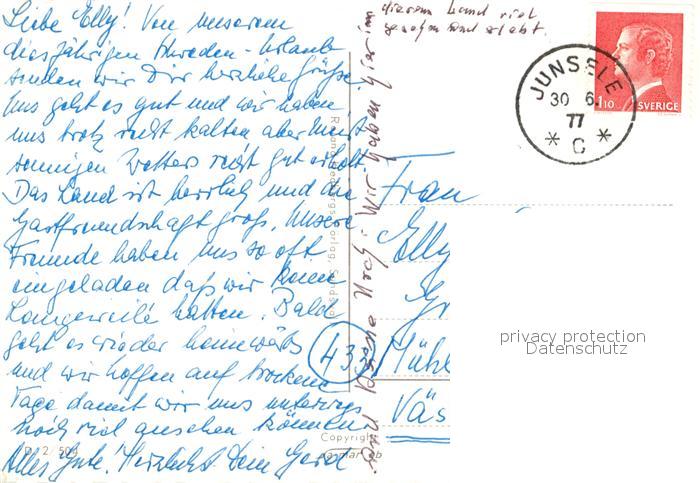 Liebe Elly! Von unserem
diesjährigen Schweden-Urlaub
senden wir Dir herzliche Grüße.
Uns geht es gut und wir haben
uns trotz recht kalten aber meist
sonnigen Wetters recht gut erholt.
Das Land ist herrlich und die
Gastfreundschaft groß. Unsere
Freunde haben uns so oft
eingeladen daß wir keine
Langeweile hatten. Bald
geht es wieder heimwärts
und wir hoffen auf trockene
Tage damit wir uns unterwegs
noch viel ansehen können.
Alles Gute. Herzlichst Dein Gerd
und Wir haben hier in
diesem Land viel
gesehen und erlebt.
JUNSELE
30 6
77
* C *
1.10
SVERIGE
Frau
Elly
433 Mülh
Väs
Copyright
privacy protection
Datenschutz